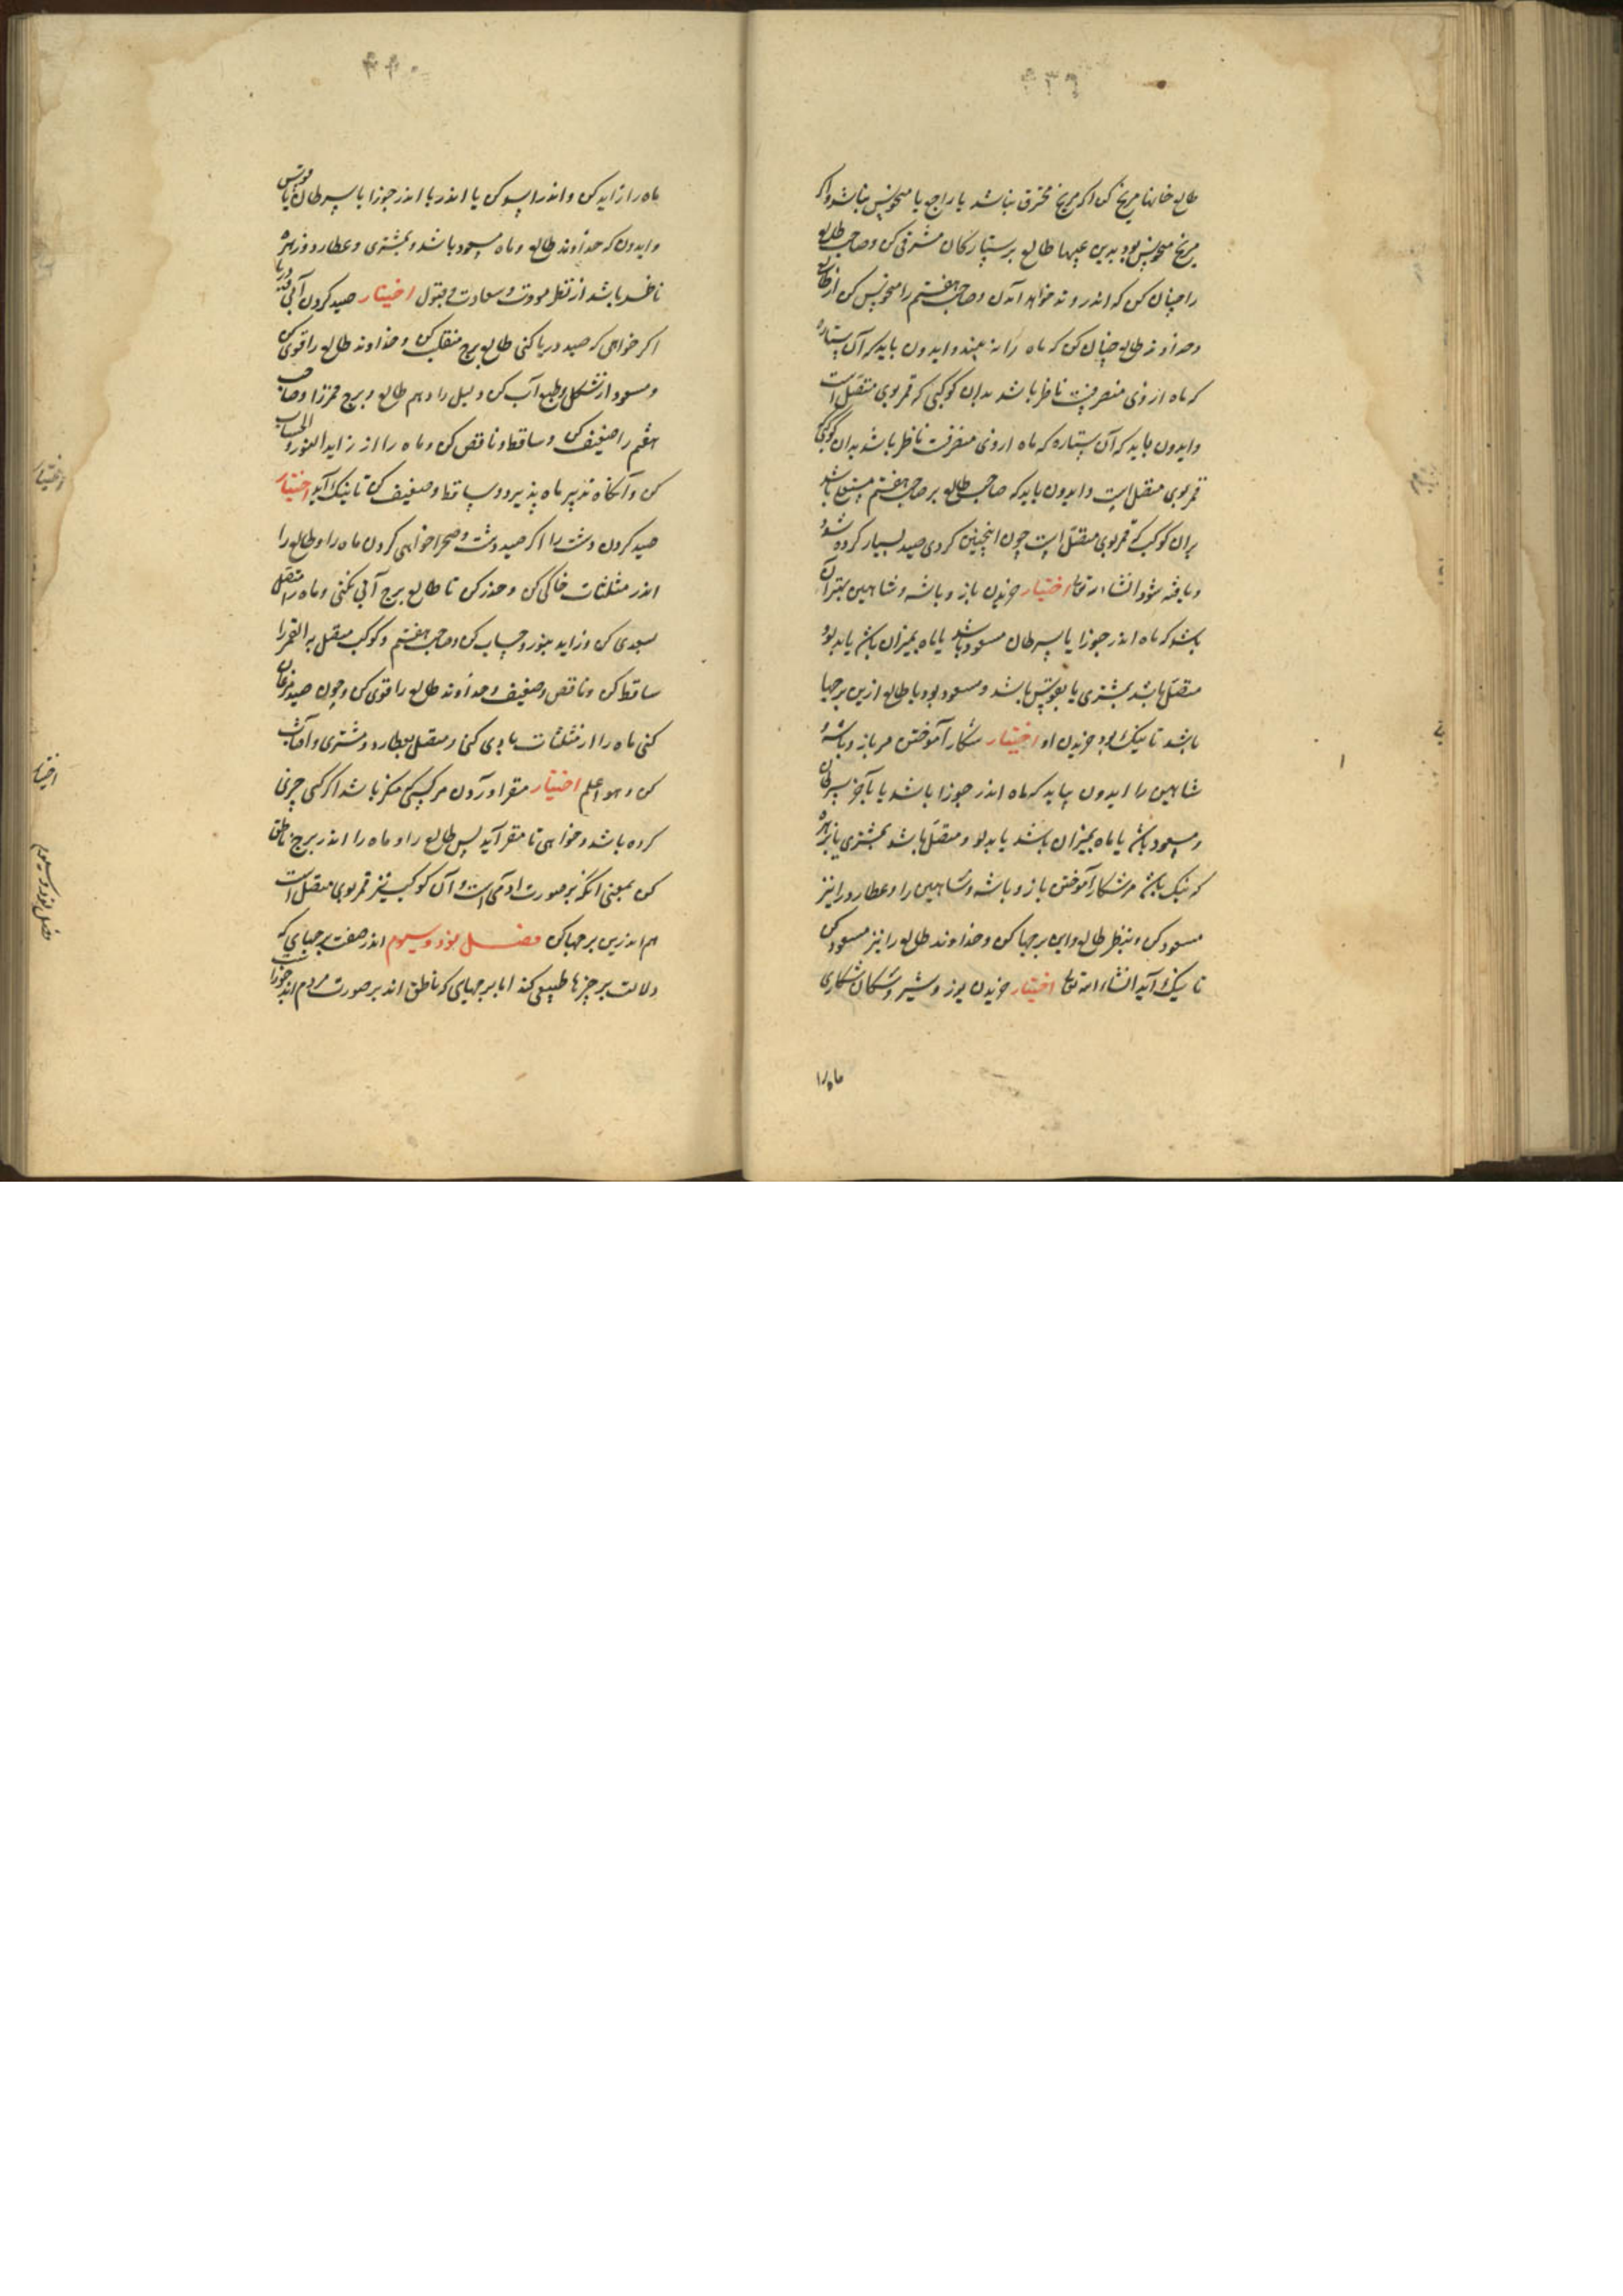 ۴۳۹
طالع خانهاء مریخ کن اگر مریخ محترق نباشد یا راجع یا منحوس نباشد و اگر
مریخ منحوس بود بدین عیبها طالع بر ستارگان مشرقی کن و صاحب طالع
را چنان کن که اندر وتد خواهد آمدن و صاحب هفتم را منحوس کن از
و خداوند طالع چنان کن که ماه را نه بیند و ایدون باید که آن ستاره
که ماه از وی منصرفست ناظر باشد بدان کوکبی که قمر بوی متصل است
و ایدون باید که آن ستاره که ماه از وی منصرفست ناظر باشد بدان کوکب که
قمر بوی متصل است و ایدون باید که صاحب طالع بر صاحب هفتم مستعلی باشد
بران کوکب که قمر بوی متصل است چون اینچنین کردی صید بسیار کرده شود
و یافته شود انشاء الله تعالی اختیار خریدن باز و باشه و شاهین بهتر آن
باشد که ماه اندر جوزا یا سرطان مسعود باشد یا ماه بمیزان باشد یا بدلو
متصل باشد بمشتری یا بقوس باشد و مسعود بود یا طالع ازین برجها
باشد تا نیک بود خریدن او اختیار شکار آموختن مر باز و باشه و
شاهین را ایدون بباید که ماه اندر جوزا باشد یا بآخر سرطان
و مسعود باشد یا ماه بمیزان باشد یا بدلو و متصل باشد بمشتری یا بزهره
که نیک باشد مر شکار آموختن باز و باشه و شاهین را و عطارد را نیز
مسعود کن و بنظر طالع و این برجها کن و خداوند طالع را نیز مسعود کن
تا نیک آید انشاء الله تعالی اختیار خریدن یوز و شیر و سگان شکاری
ماه را
۴۴۰
ماه را زاید کن و اندر اسد کن یا اندر یا اندر جوزا یا سرطان یا قوس
و ایدون که خداوند طالع و ماه مسعود باشد و بمشتری و عطارد و زهره
ناظر باشد از نظر مودت و سعادت و قبول اختیار صید کردن آبی و دریا
اگر خواهی که صید دریا کنی طالع برج منقلب کن و خداوند طالع را قوی کن
و مسعود از شکل و طبع آب کن و لیل را و هم طالع و برج قمر را و صاحب
هفتم را ضعیف کن و ساقط و ناقص کن و ماه را از زاید النور و الحساب
کن و آنگاه تدبیر ماه پذیرد و ساقط و ضعیف کن تا نیک آید اختیار
صید کردن دشت را اگر صید دشت و صحرا خواهی کردن ماه را و طالع را
اندر مثلثات خاکی کن و حذر کن تا طالع برج آبی نکنی و ماه را متصل
بسعدی کن و زاید بنور و حساب کن و صاحب هفتم و کوکب متصل به القمر را
ساقط کن و ناقص و ضعیف و خداوند طالع را قوی کن و چون صید مرغان
کنی ماه را از مثلثات بادی کن و متصل بعطارد و مشتری و آفتاب
کن و هو اعلم اختیار مقر آوردن مر کسی که منکر باشد اگر کسی چیزی
کرده باشد و خواهی تا مقر آید پس طالع را و ماه را اندر برج ناطق
کن بمعنی انکه بر صورت آدمی است و آن کوکب نیز قمر بوی متصل است
هم اندرین برجها کن فصل نود و سیوم اندر صفت برجهای که
دلالت بر چیزها طبیعی کند اما برجهای که ناطق اند بر صورت مردم اند جوزا
اختیار
اختیار
فصل نود و سیوم